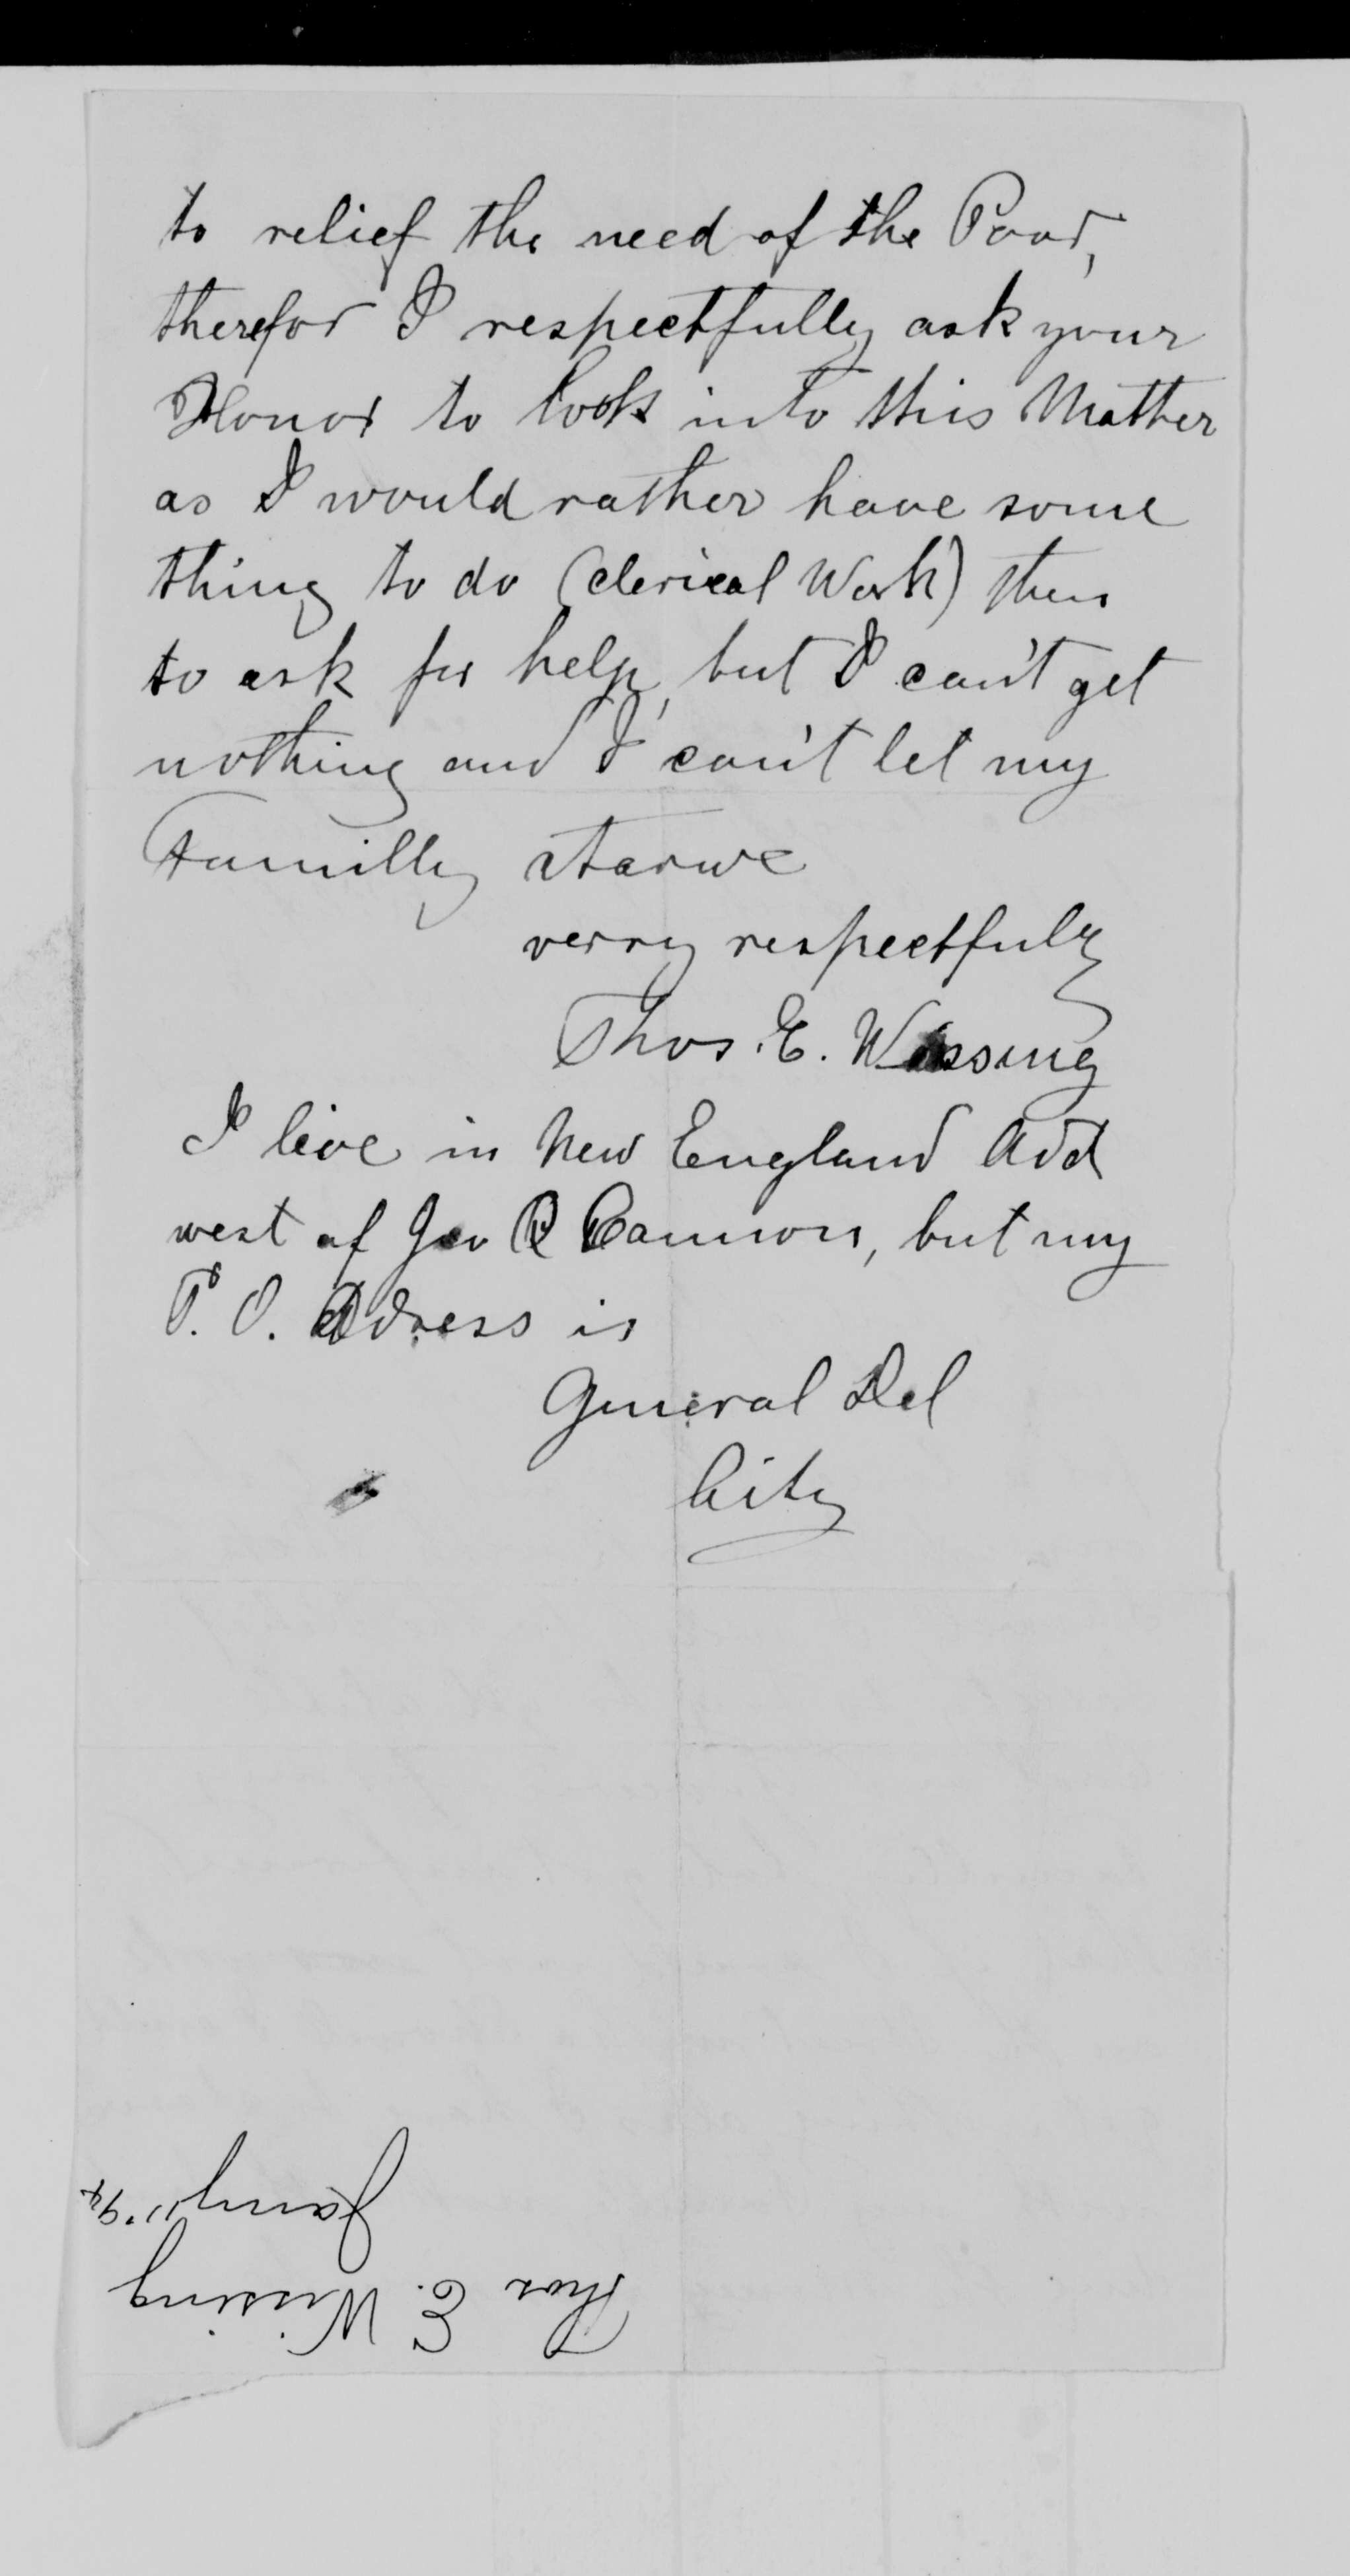 to relief the need of the Poor,
therefor I respectfully ask your
Honor to look into this Matter
as I would rather have some
thing to do (clerical Work) then
to ask for help, but I can't get
nothing and I can't let my
Familly starwe
verry respectfuly
Thos. E. Wissing
I live in New England Add
west of Geo Q Cannon, but my
P. O. Adress is
General Del
City
Thos E. Wissing
Jany 11. 94